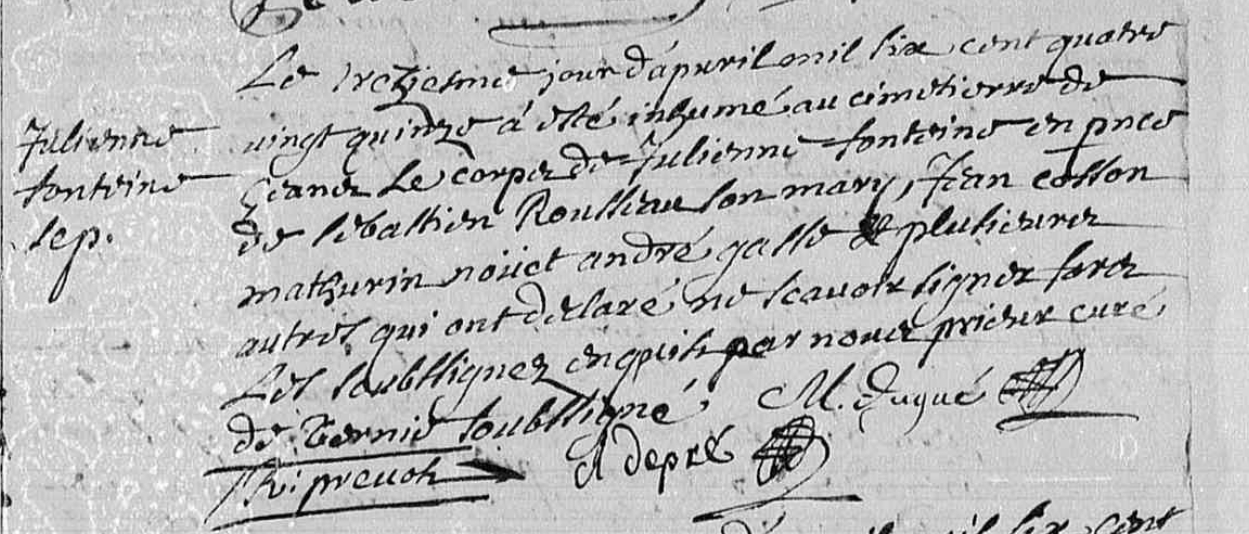 Julienne
fonteine
sep.
Le treziesme jour d'apvril mil six cent quatre
vingt quinze á esté inhumé au cimetierre de
ceans Le corps de Julienne fonteine en pnce
de sebastien Rousseau son mary, Jean cosson
mathurin noüet andré gasse & plusieurs
autres qui ont declaré ne scavoir signer fors
Les soubssignez enquis par nous prieur curé
de Bernie soubssigné. M. Dugué
Ri prevost A depré
six cent